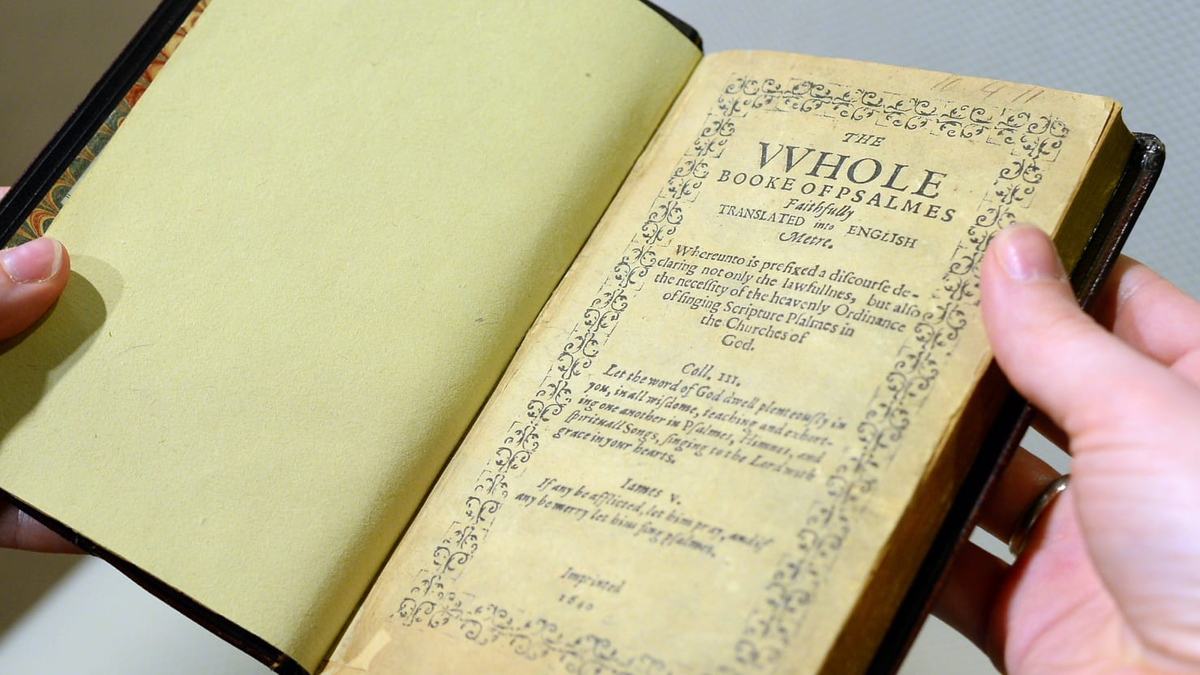 THE
VVHOLE
BOOKE OF PSALMES
Faithfully
TRANSLATED into ENGLISH
Metre.
Whereunto is prefixed a diſcourſe de-
claring not only the lawfullnes, but alſo
the neceſſity of the heavenly Ordinance
of ſinging Scripture Pſalmes in
the Churches of
God.
Coll. III.
Let the word of God dwell plenteouſly in
you, in all wiſdome, teaching and exhort-
ing one another in Pſalmes, Himnes, and
ſpirituall Songs, ſinging to the Lord with
grace in your hearts.
Iames V.
If any be afflicted, let him pray, and if
any be merry let him ſing pſalmes.
Imprinted
1640